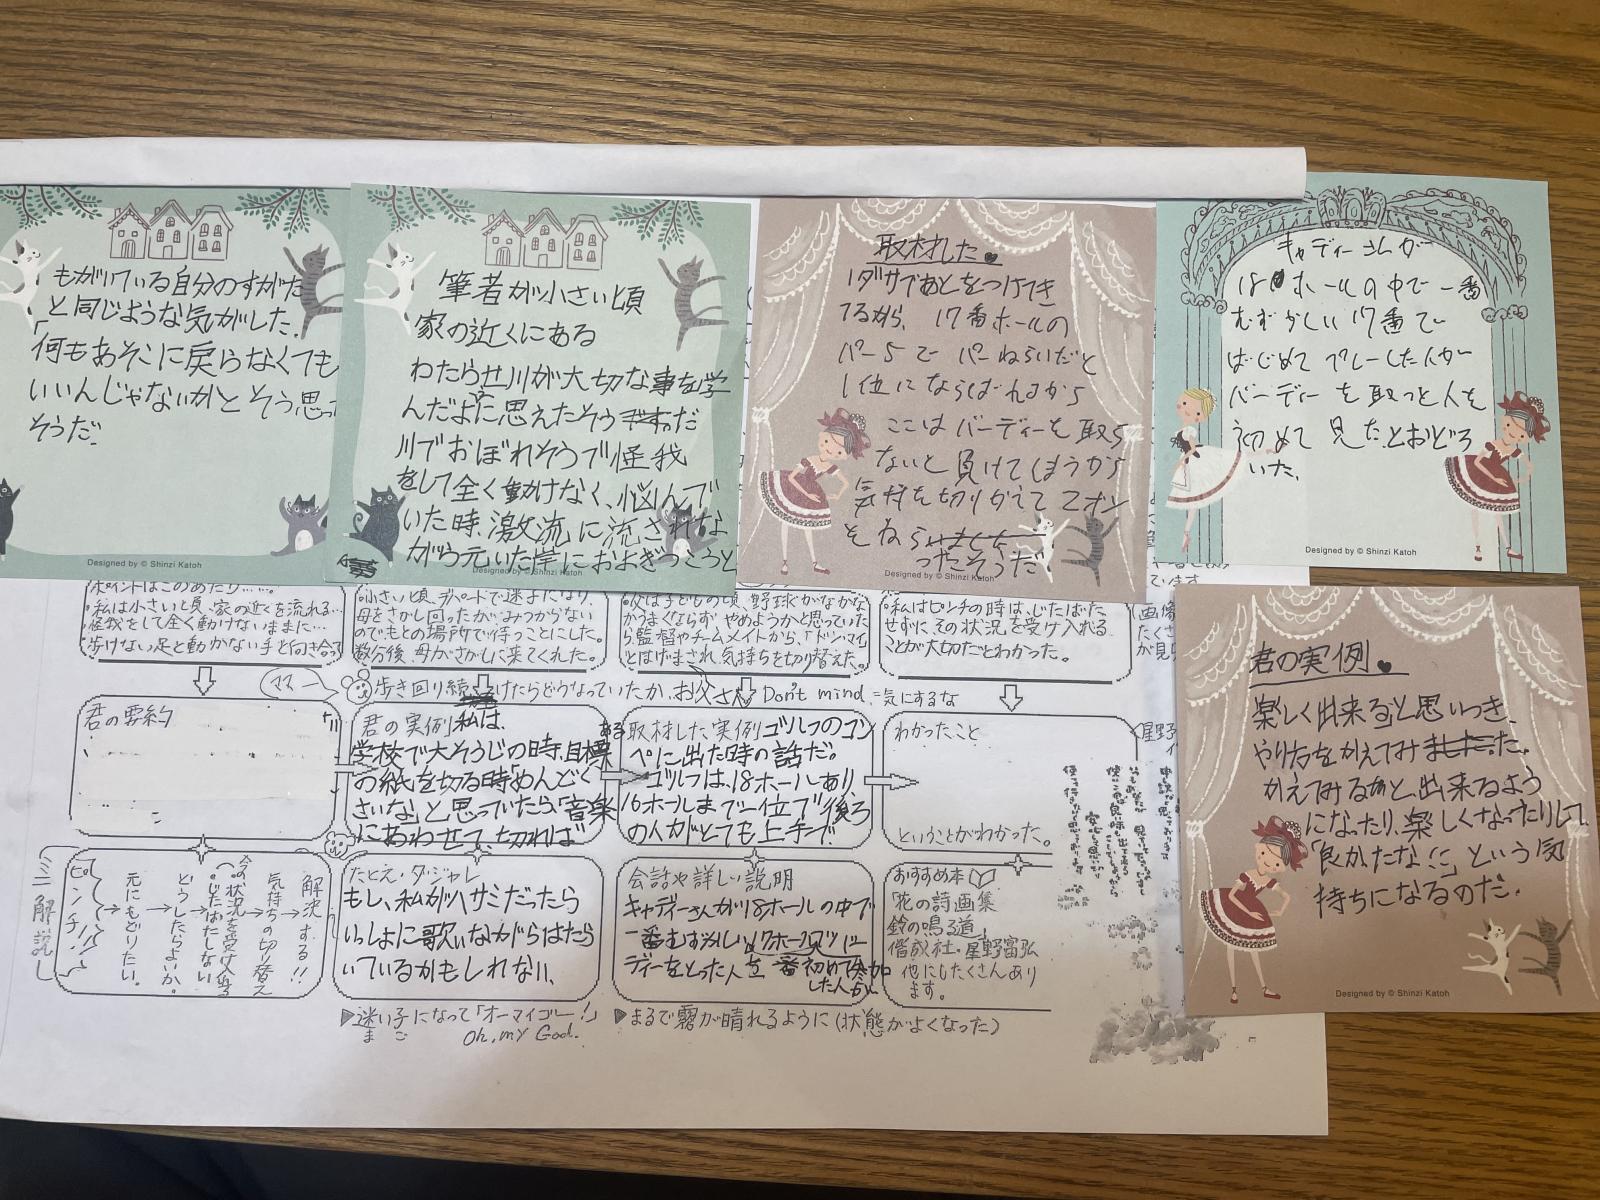 もがいている自分のすがた
と同じような気がした。
「何もあそこに戻らなくても
いいんじゃないか」とそう思っ
そうだ。
Designed by © Shinzi Katoh
筆者が小さい頃
家の近くにある
わたらせ川が大切な事を学
んだように思えたそうだ
川でおぼれそうで怪我
をして全く動けなく、悩んで
いた時、激流に流されな
がら元いた岸におよぎつこうと
Designed by © Shinzi Katoh
取材した
1ダサであとをつけてき
てるから、17番ホールの
パー5でパーねらいだと
1位にならばれるから
ここはバーディーを取ら
ないと負けてしまうから
気持を切りかえて2オン
をねら
ったそうだ
Designed by © Shinzi Katoh
キャディーさんが
18ホールの中で一番
むずかしい17番で
はじめてプレーした人が
バーディーを取った人を
初めて見たとおどろ
いた。
Designed by © Shinzi Katoh
君の実例
楽しく出来ると思いつき、
やり方をかえてみた。
かえてみると、出来るよう
になったり、楽しくなったりして
「良かったな!」という気
持ちになるのだ。
Designed by © Shinzi Katoh
ポイントはこのあたり……。
・私は小さい頃、家の近くを流れる…
・怪我をして全く動けないままに…
・歩けない足と動かない手と向き合っ
・小さい頃、デパートで迷子になり、
母をさがし回ったがみつからない
のでもとの場所で待つことにした。
数分後、母がさがしに来てくれた。
・父は子どもの頃、野球がなかな
かうまくならず やめようかと思っていた
ら、監督やチームメイトから、「ドン・マイ」
とはげまされ、気持ちを切り替えた。
・私はピンチの時は、じたばた
せずに、その状況を受け入れる
ことが大切だとわかった。
ママー
歩き回り続けたらどうなっていたか、お父さん Don't mind=気にするな
君の要約
君の実例 私は、
学校で大そうじの時、目標
の紙を切る時「めんどく
さいな」と思っていたら、「音楽
にあわせて、切れば
取材した実例 ゴルフのコン
ペに出た時の話だ。
ゴルフは、18ホールあり、
16ホールまで一位で後ろ
の人がとても上手で、
わかったこと
ということがわかった。
ミニ解説
ピンチ!
→元にもどりたい。
→どうしたらよいか。
今の状況を受け入れる
じたばたしない
→気持ちの切り替え
→解決する!!
たとえ・ダジャレ
もし、私がハサミだったら
いっしょに歌いながらはたら
いているかもしれない。
会話や詳しい説明
キャディーさんが18ホールの中で
一番むずかしい17ホールでバー
ディーをとった人を一番初めて参加
した人が
おすすめ本
「花の詩画集
鈴の鳴る道」
偕成社・星野富弘
他にもたくさんあり
ます。
▶迷い子になって「オーマイゴー!」
まご
Oh, my God.
▶まるで霧が晴れるように(状態がよくなった)